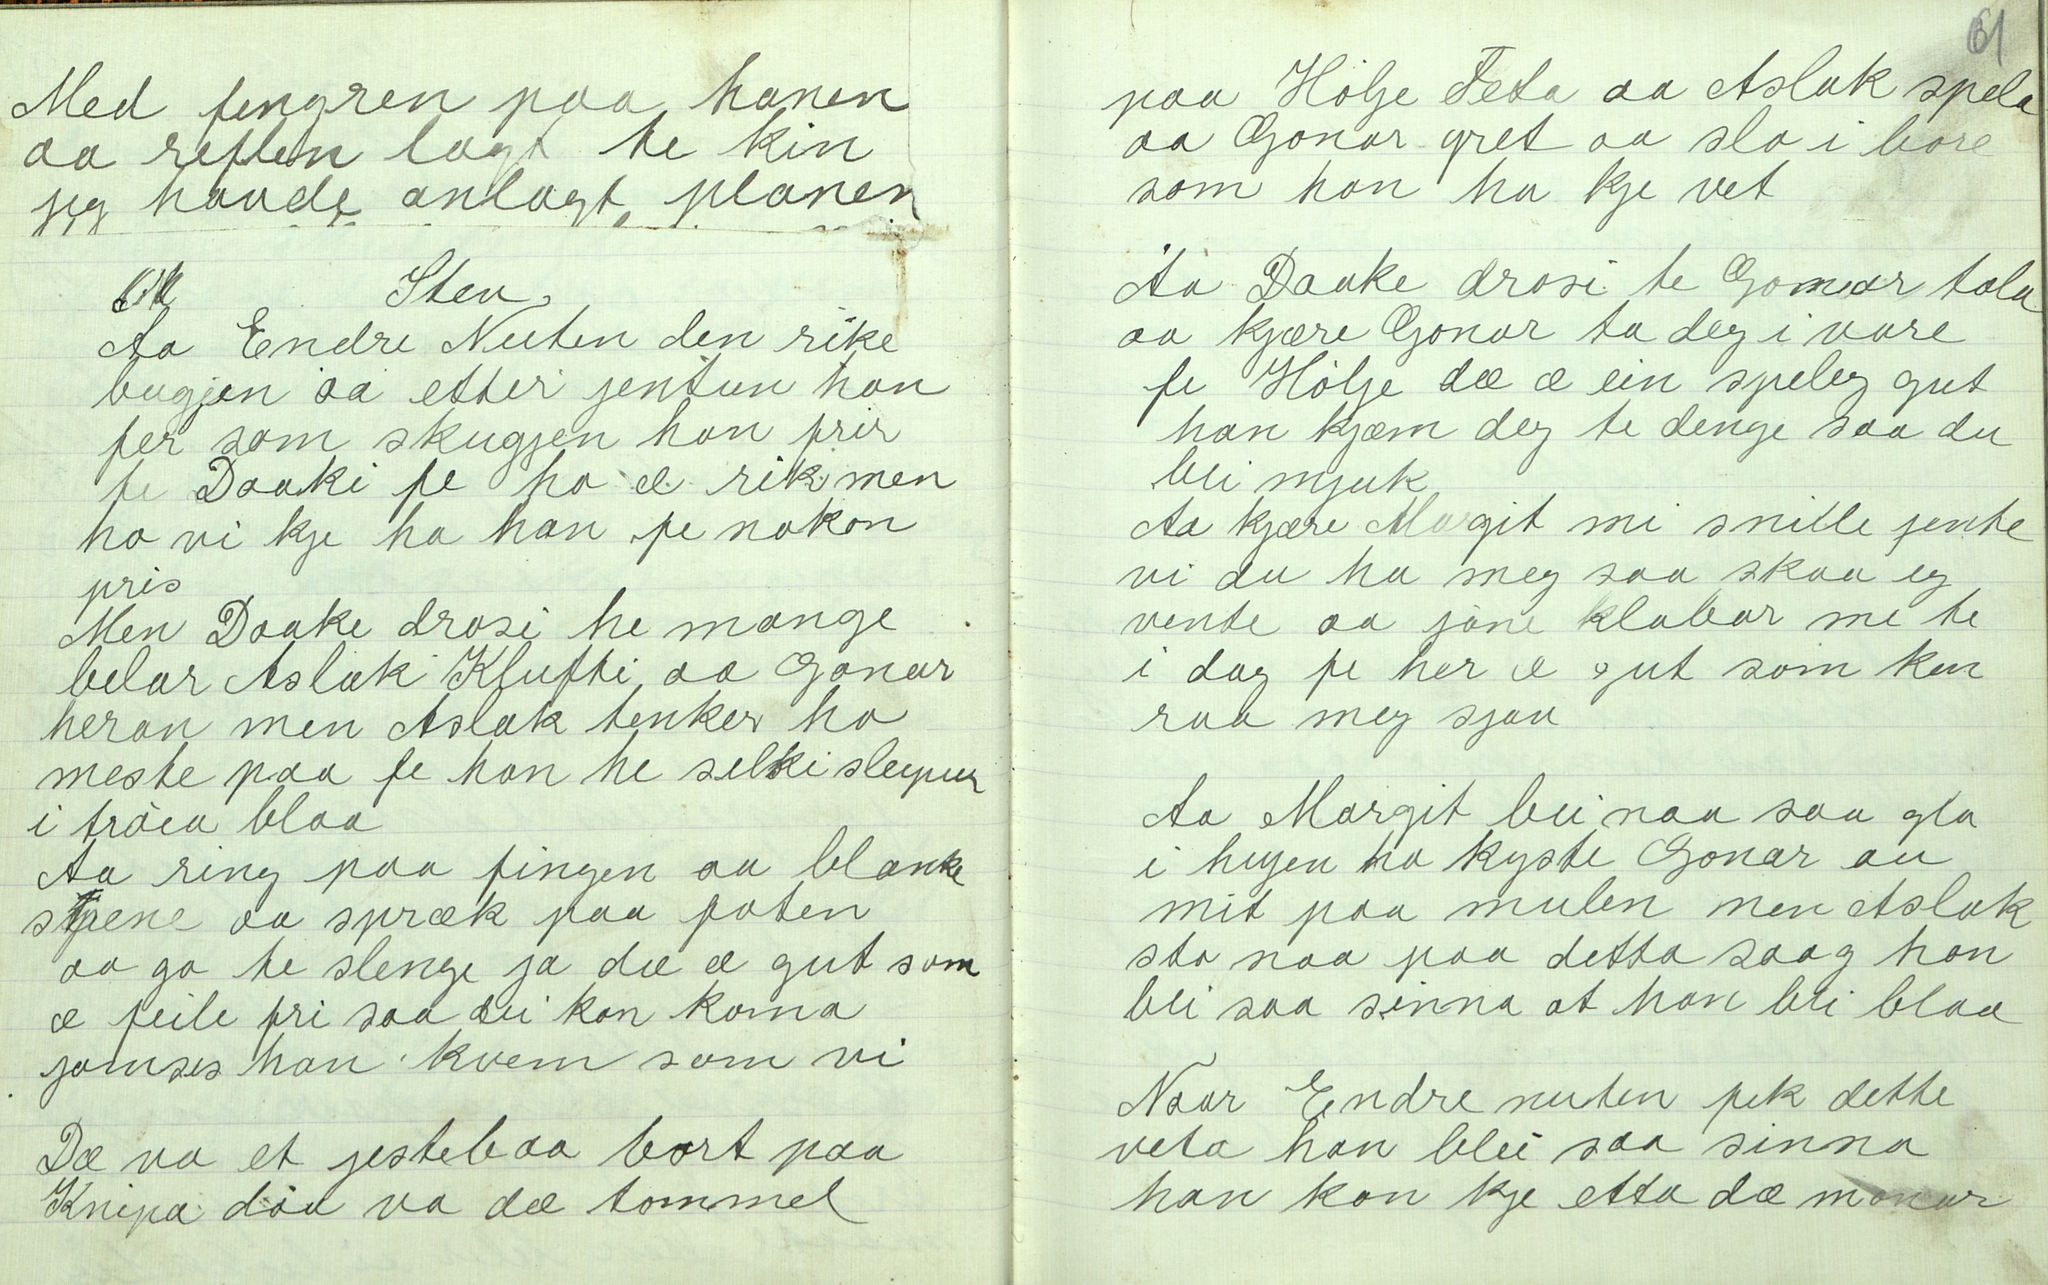 Med fengren paa hanen
aa reflen lagt te kin
jeg havde anlagt planen
Stev
Aa Endre Nuten den rike
bugjen aa etter jentun han
fer som skuggen han frir
fe Daaki fe ho æ rik men
ho vi kje ha han fe nokon
pris
Men Daake drosi he mange
belar Aslak Klufti aa Gonar
heran men Aslak tenker ho
meste paa fe han he selki sleipur
i tröia blaa
Aa ring paa fingen aa blanke
spene aa spræk paa foten
aa go te slenge ja dæ æ gut som
æ feile fri saa dei kan koma
jamses han kvem som vi
Dæ va et jestebaa bort paa
Knipa döa va dæ tommel
61
paa Hölje Feta aa Aslak spela
aa Gonar gret aa slo i bore
som han ha kje vet
Aa Daake drosi te Gonar tala
aa kjære Gonar ta deg i vare
fe Hölje dæ æ ein speleg gut
han kjæm deg te denge saa du
bli mjuk
Aa kjære Margit mi snille jente
vi du ha meg saa skaa eg
vente aa jöne klabar me te
i dag fe her æ gut som ken
raa meg sjaa
Aa Margit bei naa saa gla
i hugen ho kyste Gonar au
mit paa mulen men Aslak
sto naa paa detta saag han
bli saa sinna at han bli blaa
Naar Endre nuten fek dette
veta han blei saa sinna
han kan kje etta dæ monar